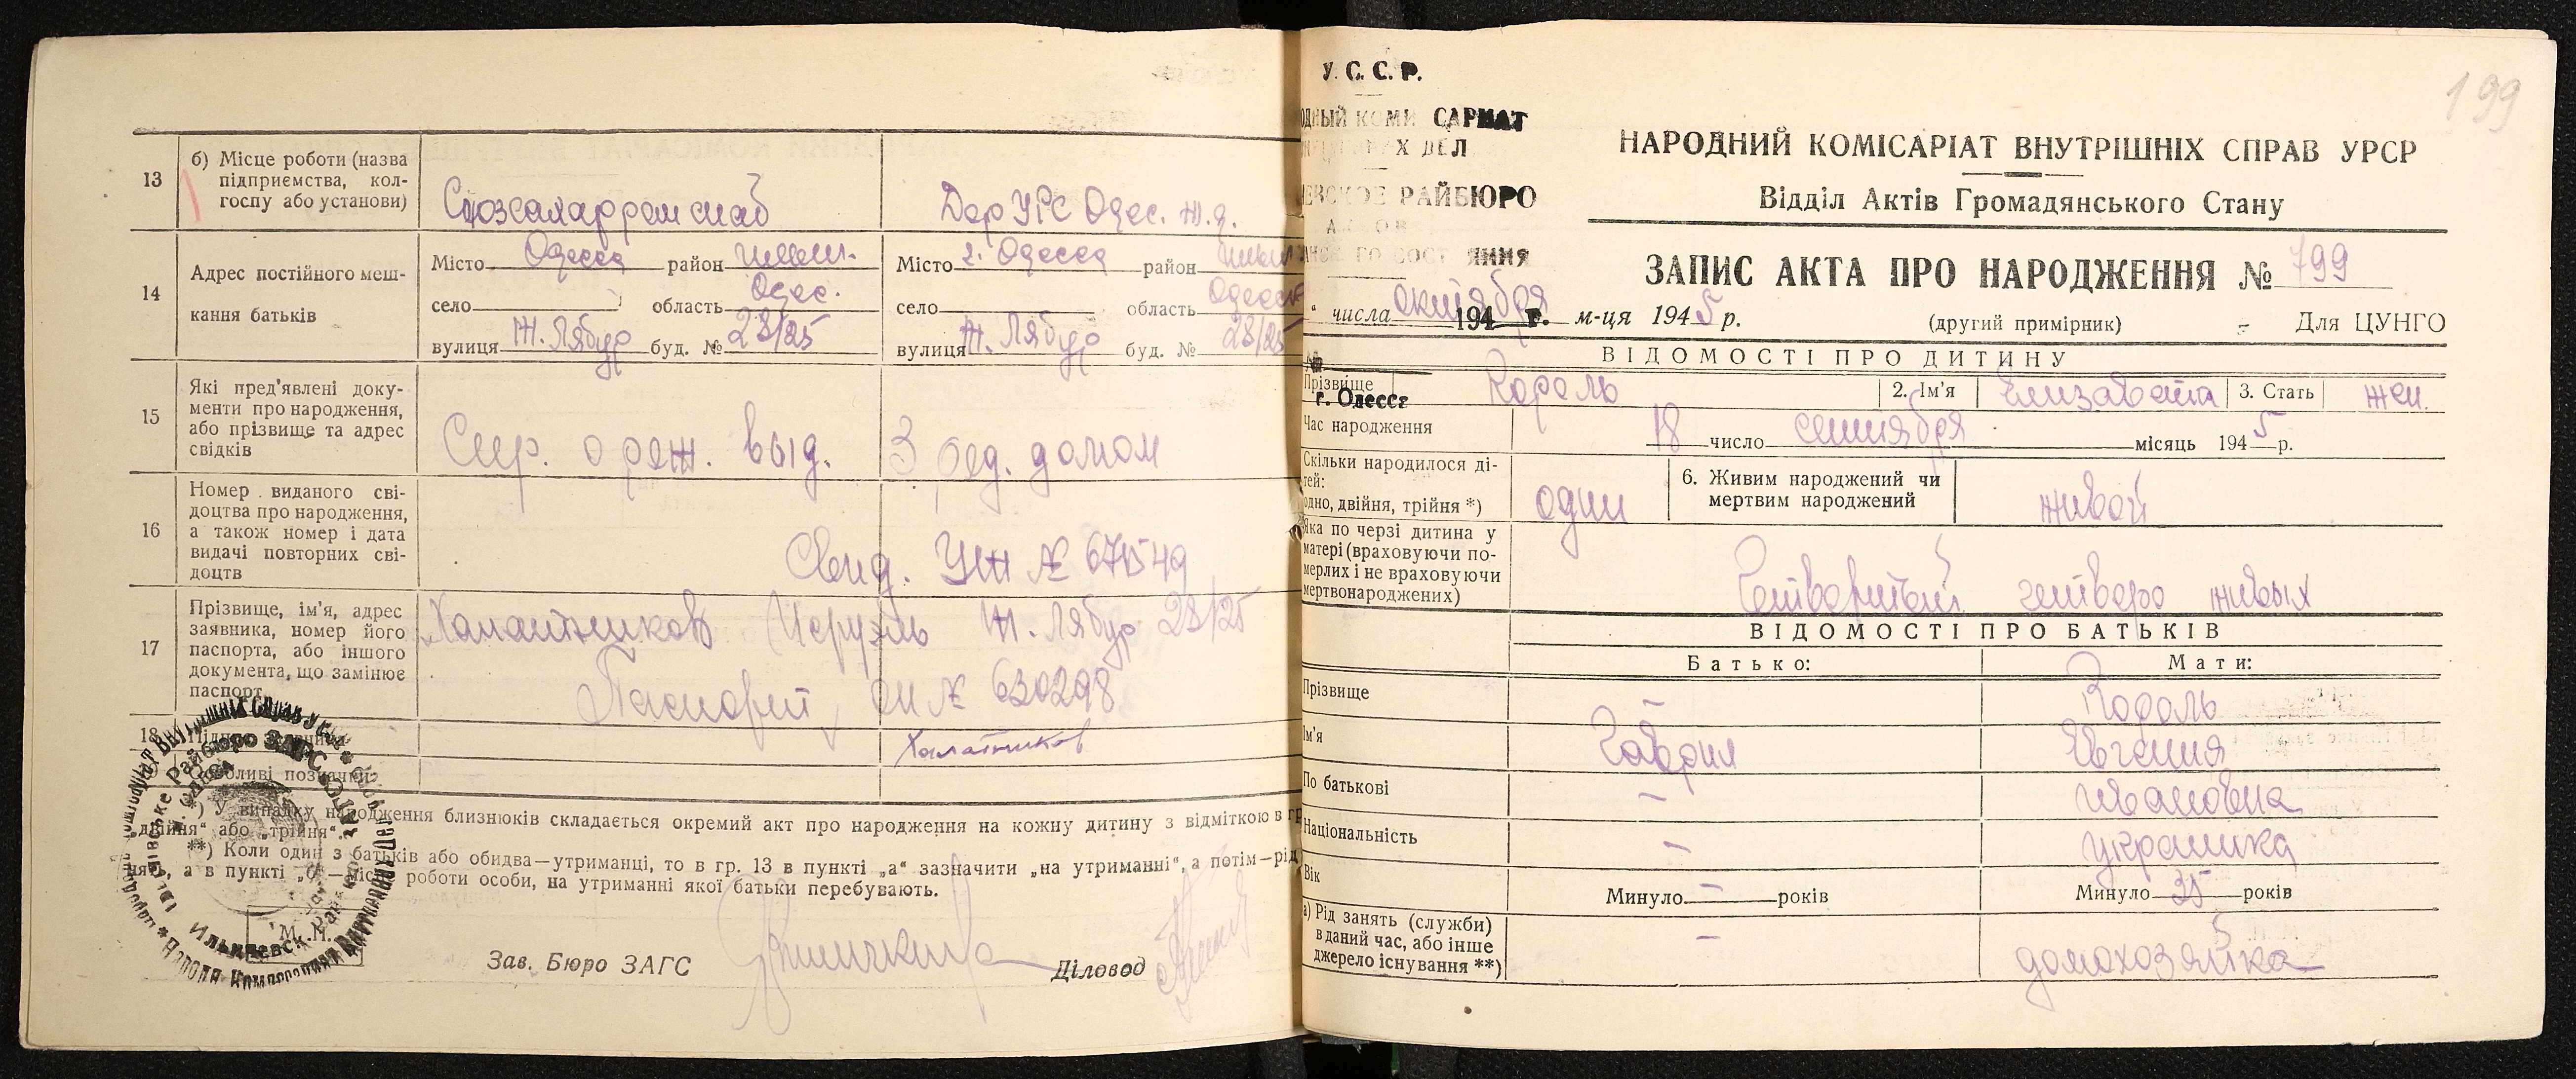 13
б) Місце роботи (назва
підприємства, кол-
госпу або установи)
Союзсахарромснаб
Дор УРС Одес. ж. д.
14
Адрес постійного меш-
кання батьків
Місто Одесса район
село область Одес.
вулиця Ж. Лябур буд. № 23/25
Місто г. Одесса район
село область
вулиця Ж. Лябур буд. № 23/25
15
Які пред'явлені доку-
менти про народження,
або прізвище та адрес
свідків
о рож. выд. 3 род. домом
16
Номер виданого сві-
доцтва про народження,
а також номер і дата
видачі повторних сві-
доцтв
Свид. №
17
Прізвище, ім'я, адрес
заявника, номер його
паспорта, або іншого
документа, що замінює
паспорт
Халатников Исруэль Ж. Лябур 23/25
Паспорт № 630298
18
Халатников
*) У випадку народження близнюків складається окремий акт про народження на кожну дитину з відміткою в гр
„двійня“ або „трійня“.
**) Коли один з батьків або обидва—утриманці, то в гр. 13 в пункті „а“ зазначити „на утриманні“, а потім—рід
а в пункті „б“—місце роботи особи, на утриманні якої батьки перебувають.
М. П.
Зав. Бюро ЗАГС
Діловод
У. С. С. Р.
ОДНЫЙ КОМИ САРИАТ
Х ДЕЛ
ЕВСКОЕ РАЙБЮРО
194 г.
г. Одесса
199
НАРОДНИЙ КОМІСАРІАТ ВНУТРІШНІХ СПРАВ УРСР
Відділ Актів Громадянського Стану
ЗАПИС АКТА ПРО НАРОДЖЕННЯ № 799
“ числа октября м-ця 1945 р. (другий примірник) Для ЦУНГО
ВІДОМОСТІ ПРО ДИТИНУ
Прізвище Король 2. Ім'я Елизавета 3. Стать жен.
Час народження 18 число сентября місяць 1945 р.
Скільки народилося ді-
тей:
одно, двійня, трійня *)
один
6. Живим народжений чи
мертвим народжений
живой
Яка по черзі дитина у
матері (враховуючи по-
мерлих і не враховуючи
мертвонароджених)
Четвертый четверо живых
ВІДОМОСТІ ПРО БАТЬКІВ
Батько: Мати:
Прізвище – Король
Ім'я Гаврил Евгения
По батькові – Ивановна
Національність – украинка
Вік Минуло – років Минуло 35 років
а) Рід занять (служби)
в даний час, або інше
джерело існування **)
– домохозяйка